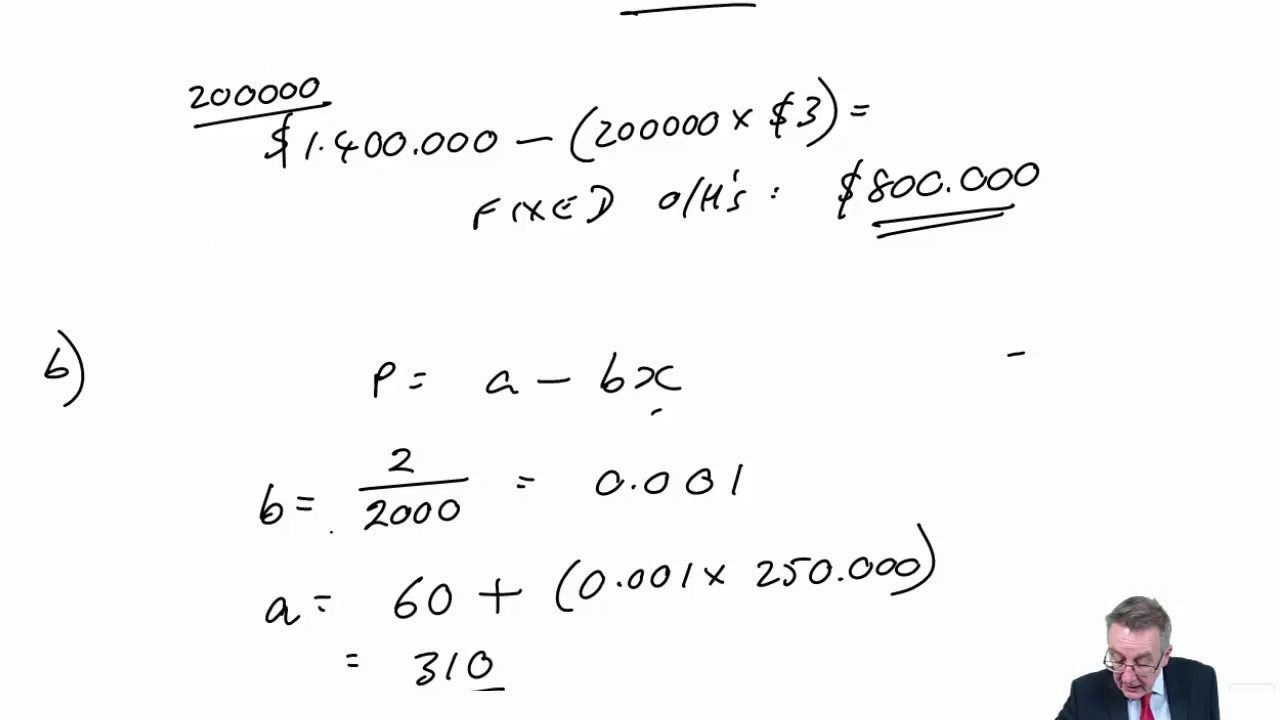 200000
$1.400.000 — (200000 × $3) =
FIXED O/H's : $800.000
b)
P = a — bx
b = 2/2000 = 0.001
a = 60 + (0.001 × 250.000)
= 310